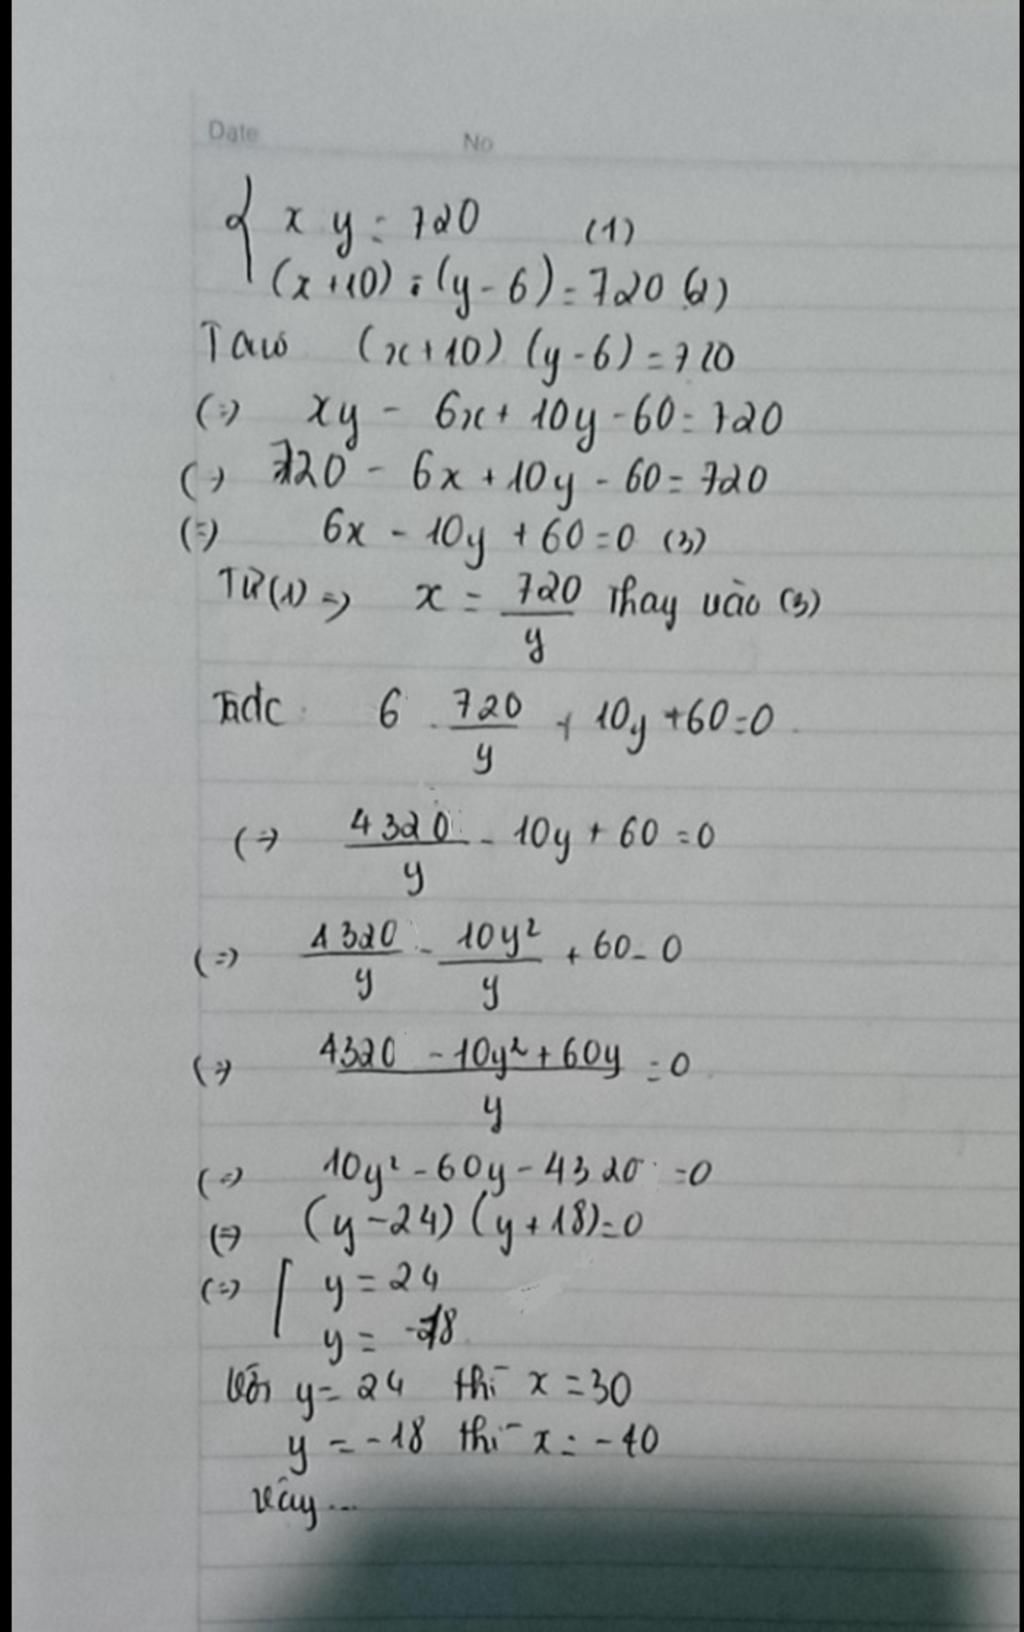 Date No
{ xy = 720 (1)
(x+10) . (y-6) = 720 (2)
Taco (x+10) (y-6) = 720
(=) xy - 6x + 10y - 60 = 720
(=) 720 - 6x + 10y - 60 = 720
(=) 6x - 10y + 60 = 0 (3)
Từ (1) => x = 720/y Thay vào (3)
Tađc 6 . 720/y + 10y + 60 = 0
(=) 4320/y - 10y + 60 = 0
(=) 4320/y - 10y²/y + 60 = 0
(=) (4320 - 10y² + 60y)/y = 0
(=) 10y² - 60y - 4320 = 0
(=) (y-24) (y+18) = 0
(=) [ y = 24
y = -18
Với y = 24 thì x = 30
y = -18 thì x = -40
Vậy ...